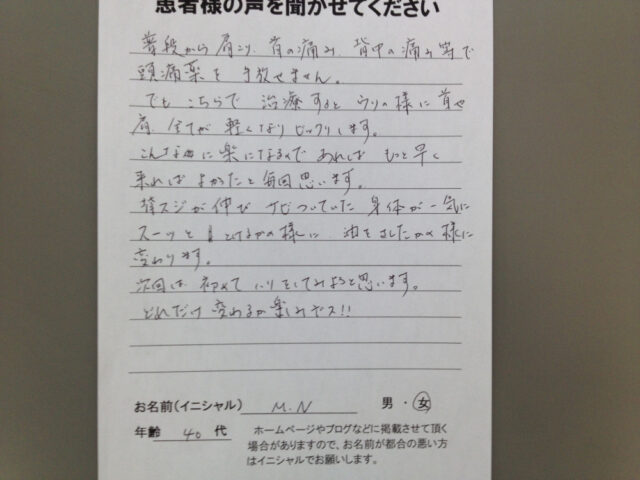 患者様の声を聞かせてください
普段から肩こり、首の痛み、背中の痛み等で
頭痛薬を手放せません。
でもこちらで治療するとウソの様に首や
肩、全てが軽くなりビックリします。
こんなに楽になるのであればもっと早く
来ればよかったと毎回思います。
背スジが伸びサビついていた身体が一気に
スーッと とけるかの様に、油をさしたかの様に
変わります。
次回は初めてハリをしてみようと思います。
どれだけ変わるか楽しみデス!!
お名前(イニシャル) M.N 男・女
年齢 40 代 ホームページやブログなどに掲載させて頂く
場合がありますので、お名前が都合の悪い方
はイニシャルでお願いします。